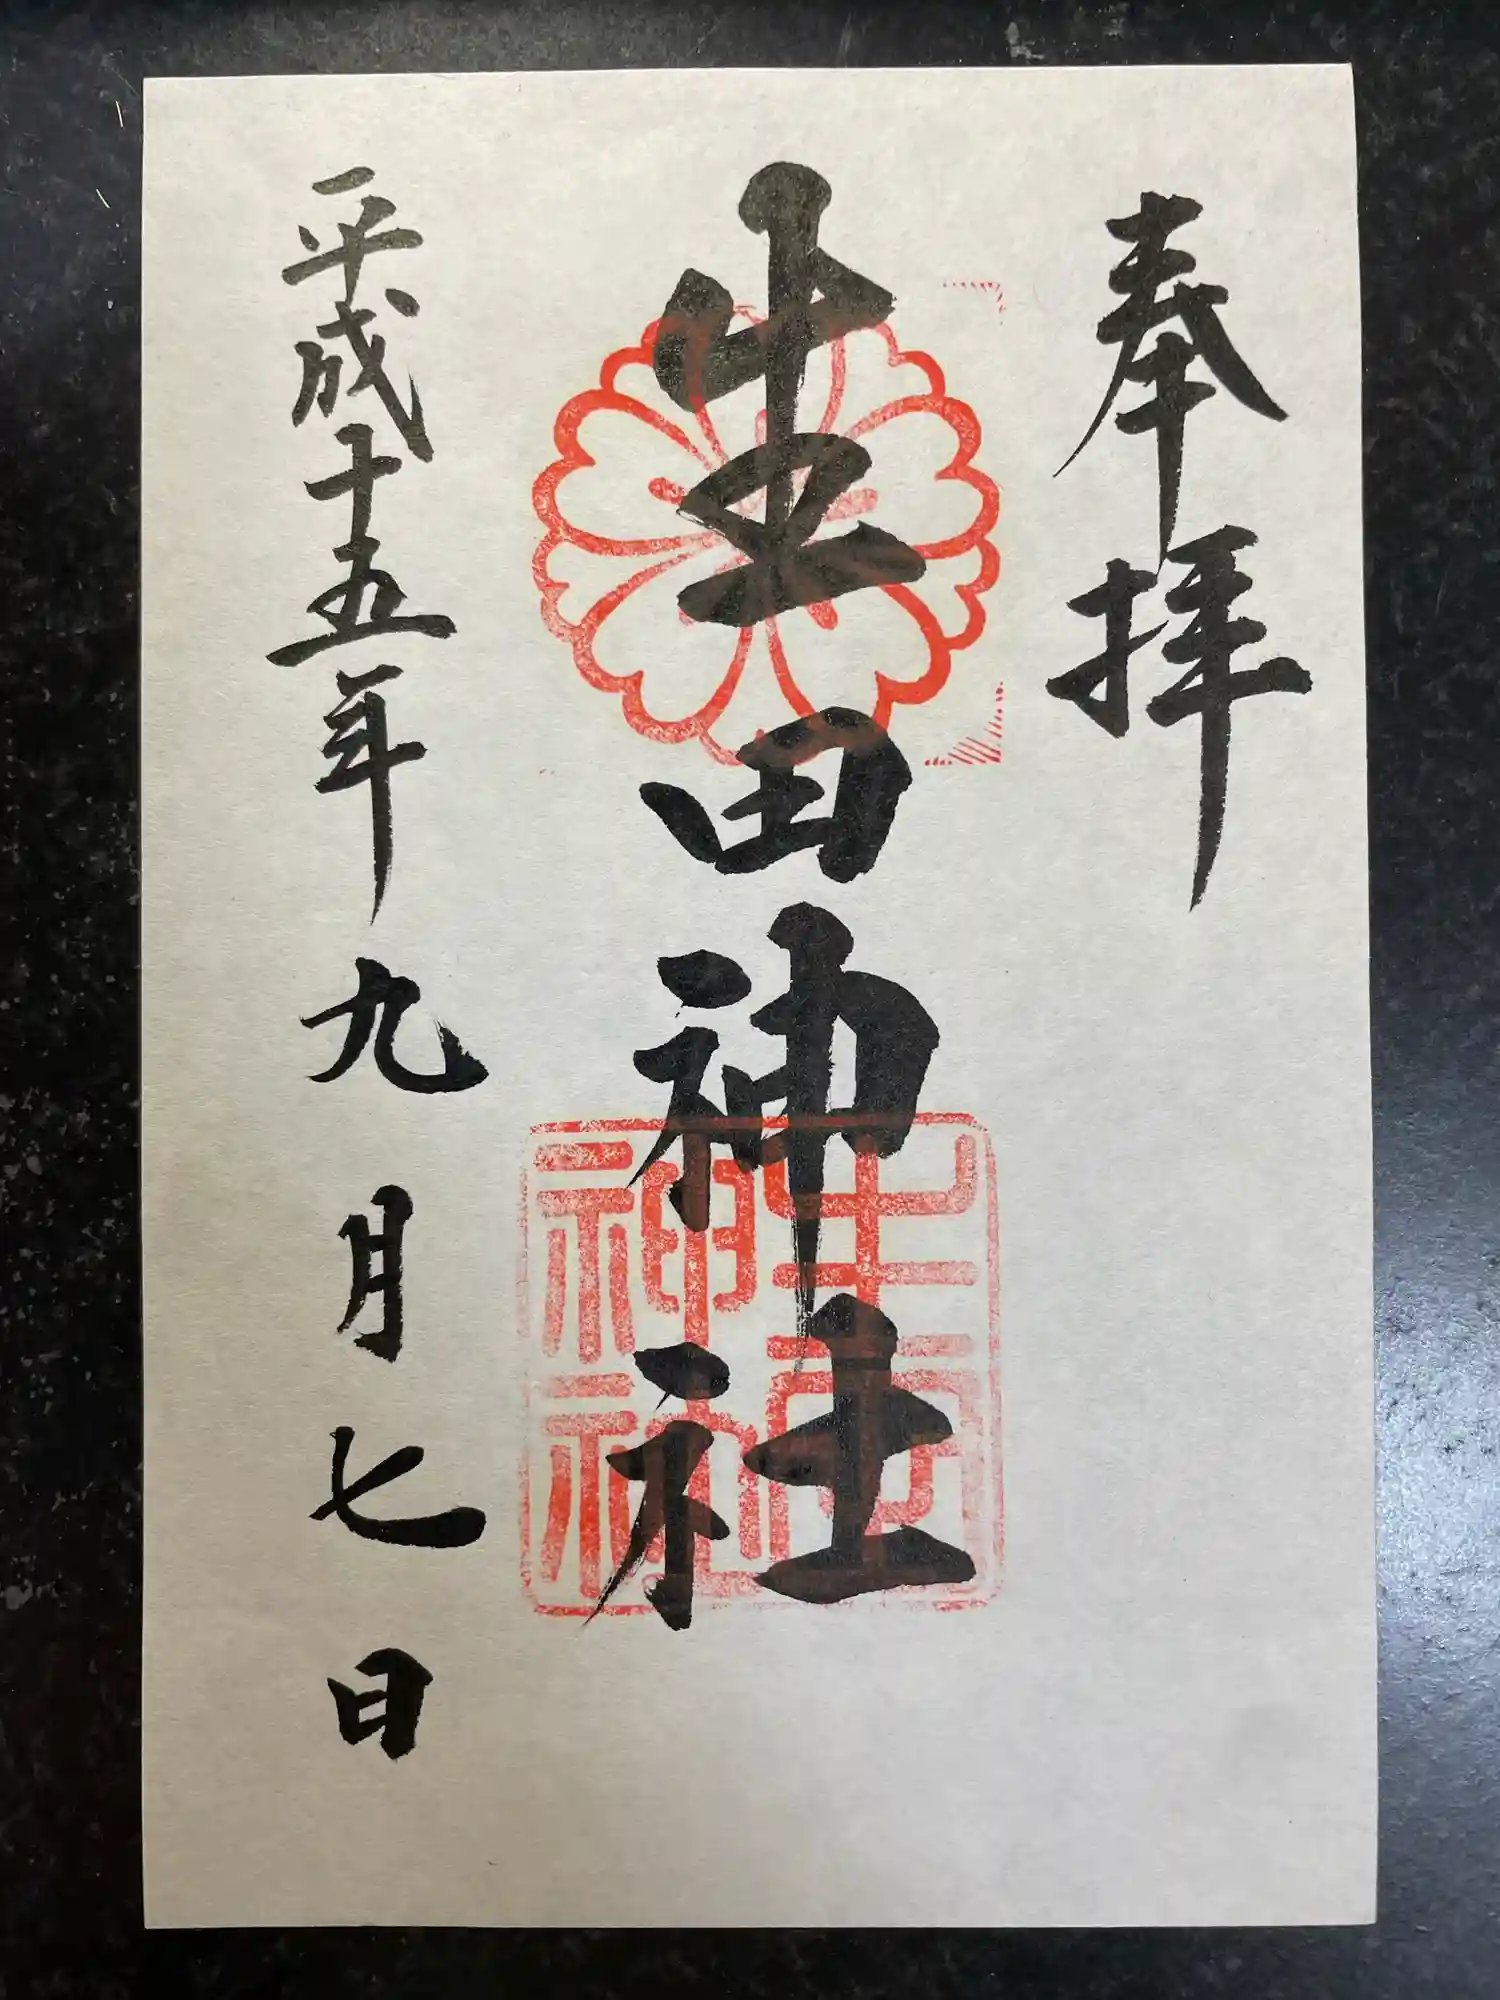 奉拝
生田神社
生田神社
平成十五年九月七日